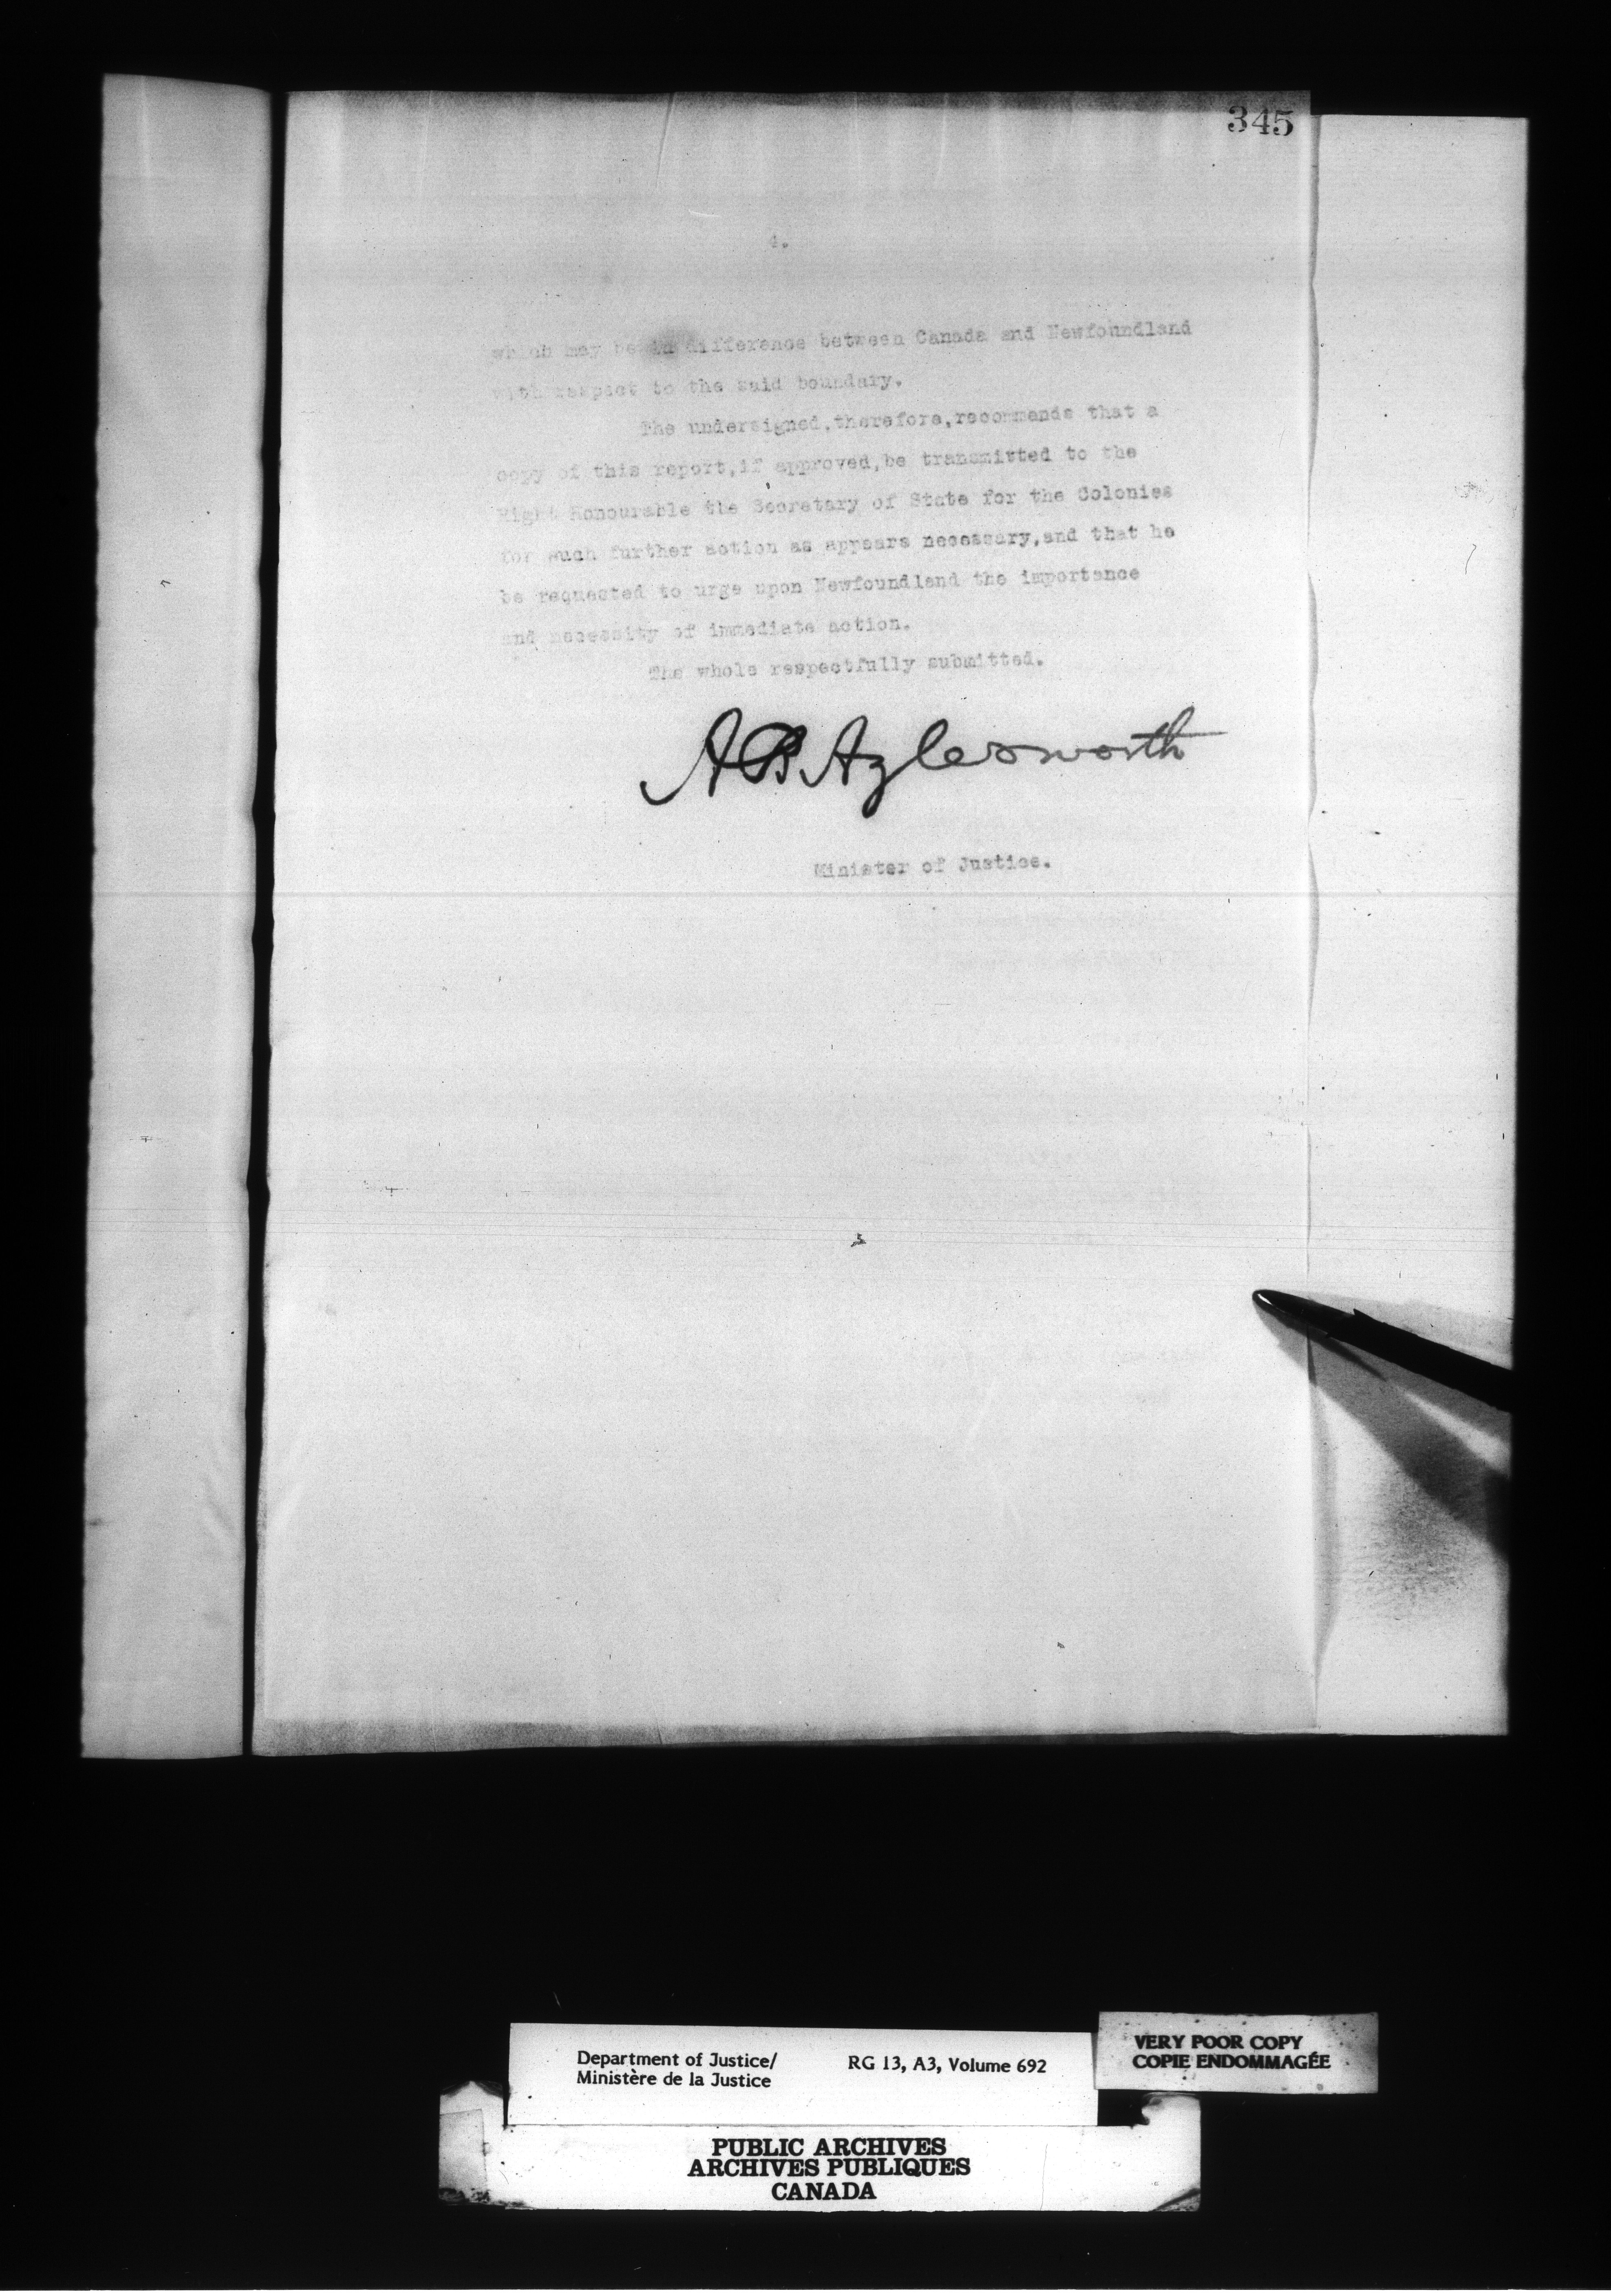 345
4.
which may be in difference between Canada and Newfoundland
with respect to the said boundary.
The undersigned,therefore,recommends that a
copy of this report,if approved,be transmitted to the
Right Honourable the Secretary of State for the Colonies
for such further action as appears necessary,and that he
be requested to urge upon Newfoundland the importance
and necessity of immediate action.
The whole respectfully submitted.
A B Aylesworth
Minister of Justice.
Department of Justice/
Ministère de la Justice
RG 13, A3, Volume 692
VERY POOR COPY
COPIE ENDOMMAGÉE
PUBLIC ARCHIVES
ARCHIVES PUBLIQUES
CANADA